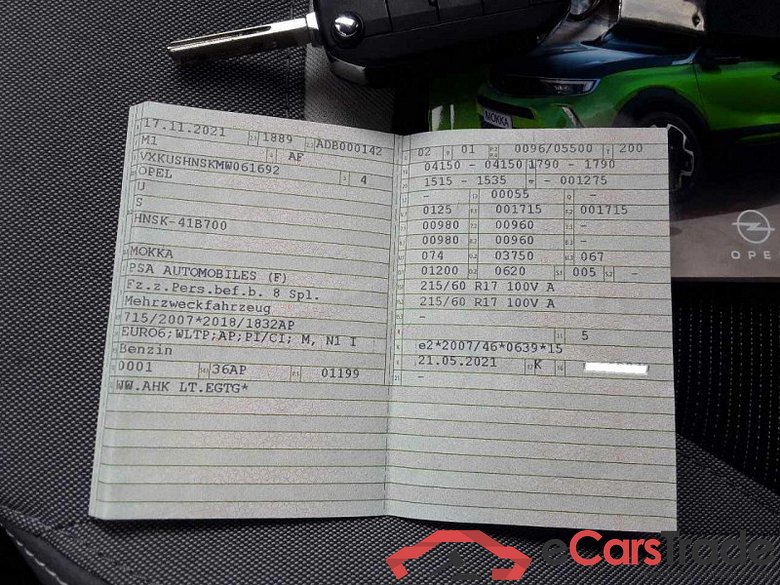 MOKKA
OPE
17.11.2021 1889 ADB000142
M1 AF
VXKUSHNSKMW061692 4
OPEL
U
S
HNSK-41B700
MOKKA
PSA AUTOMOBILES (F)
Fz.z.Pers.bef.b. 8 Spl.
Mehrzweckfahrzeug
715/2007*2018/1832AP
EURO6;WLTP;AP;PI/CI; M, N1 I
Benzin
0001 36AP 01199
WW.AHK LT.EGTG*
02 01 0096/05500 200
04150 - 04150 1790 - 1790
1515 - 1535 - 001275
- 00055 -
0125 001715 001715
00980 00960 -
00980 00960 -
074 03750 067
01200 0620 005 -
215/60 R17 100V A
215/60 R17 100V A
-
- 5
e2*2007/46*0639*15
21.05.2021 K
-
eCarsTrade